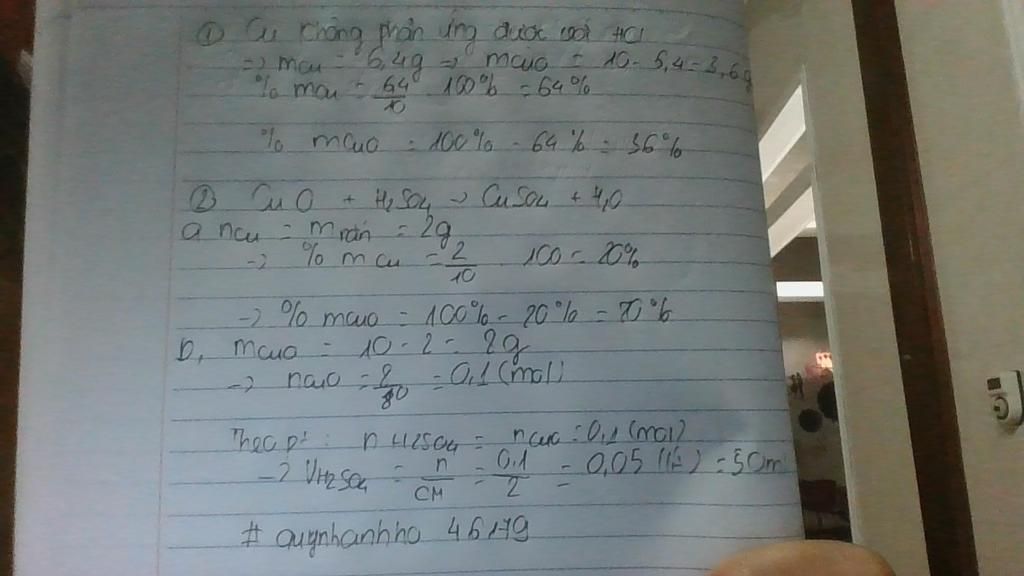 ① Cu không phản ứng được với HCl
=> mCu = 6,4g => mCuO = 10 - 6,4 = 3,6g
% mCu = 64/10 . 100% = 64%
% mCuO = 100% - 64% = 36%
② CuO + H₂SO₄ → CuSO₄ + H₂O
a nCu = m rắn = 2g
-> % mCu = 2/10 100 = 20%
-> % mCuO = 100% - 20% = 80%
b, mCuO = 10 - 2 = 8g
-> nCuO = 8/80 = 0,1 (mol)
Theo pt : n H2SO4 = nCuO = 0,1 (mol)
-> VH2SO4 = n/CM = 0,1/2 = 0,05 (lít) = 50m
# quynhanhho